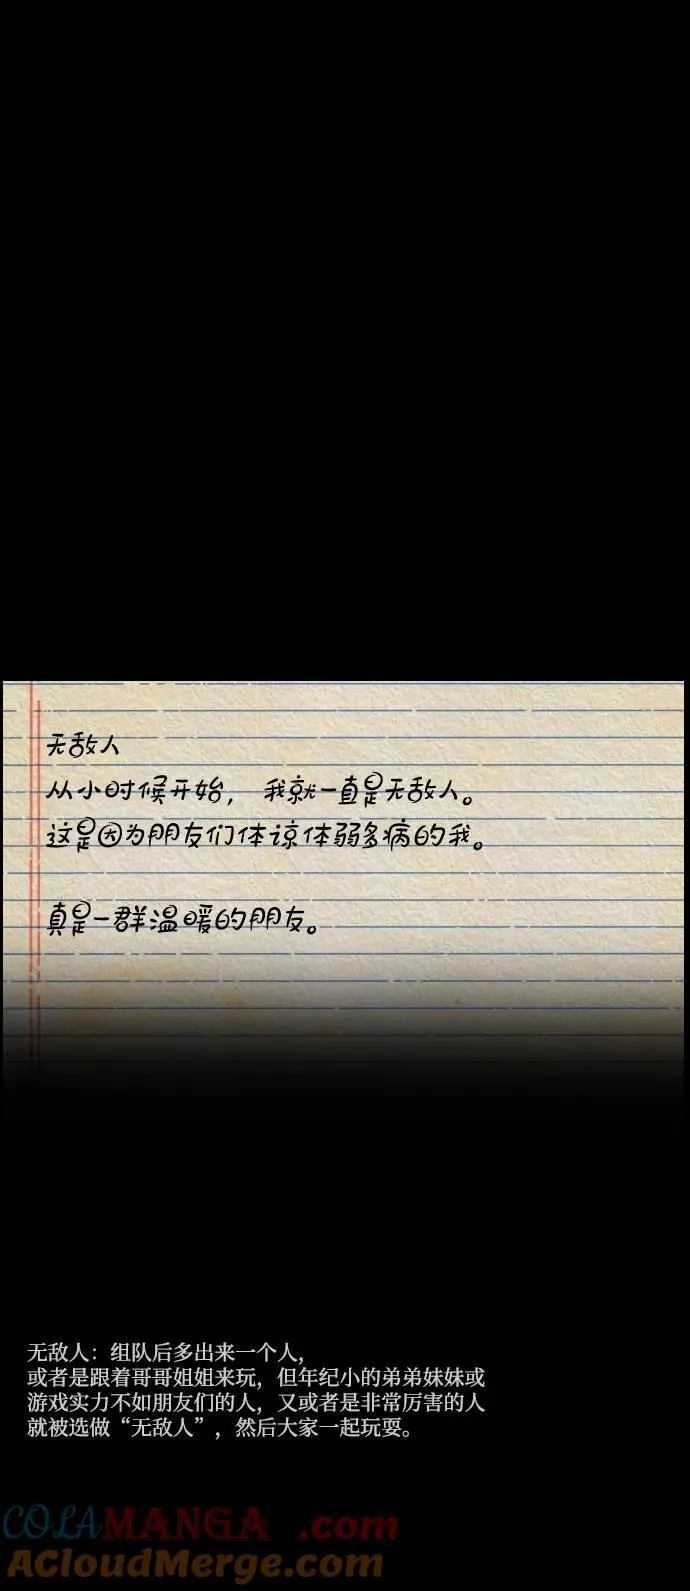 无敌人
从小时候开始，我就一直是无敌人。
这是因为朋友们体谅体弱多病的我。
真是一群温暖的朋友。
无敌人：组队后多出来一个人，
或者是跟着哥哥姐姐来玩，但年纪小的弟弟妹妹或
游戏实力不如朋友们的人，又或者是非常厉害的人
就被选做“无敌人”，然后大家一起玩耍。
COLAMANGA.com
ACloudMerge.com